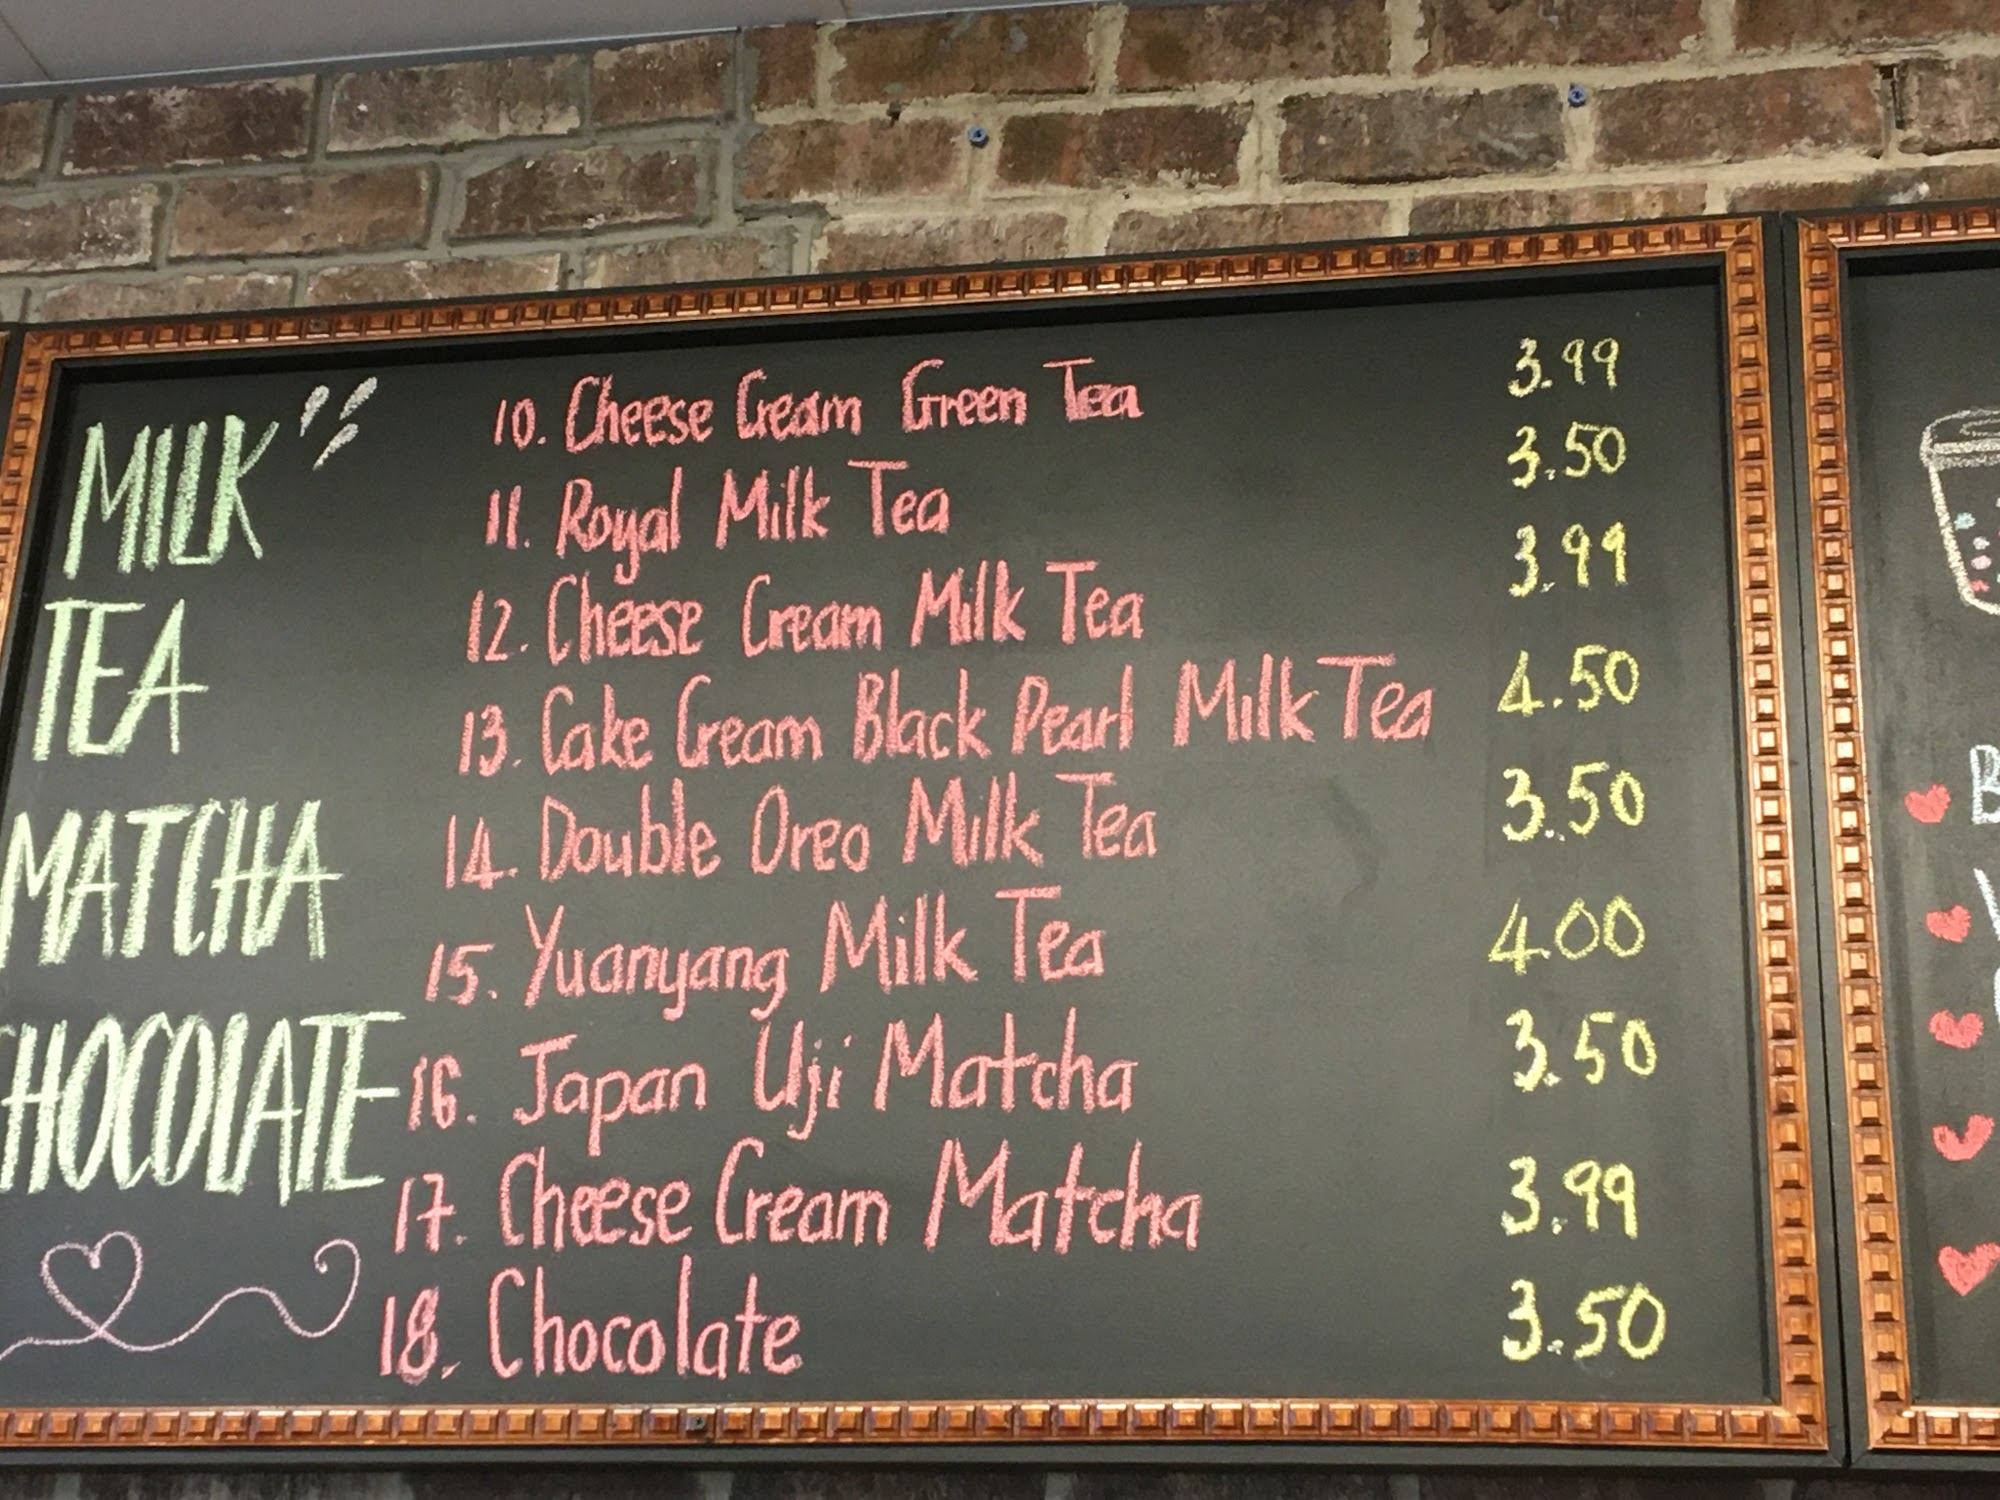 MILK
TEA
MATCHA
CHOCOLATE
10. Cheese Cream Green Tea 3.99
11. Royal Milk Tea 3.50
12. Cheese Cream Milk Tea 3.99
13. Cake Cream Black Pearl Milk Tea 4.50
14. Double Oreo Milk Tea 3.50
15. Yuanyang Milk Tea 4.00
16. Japan Uji Matcha 3.50
17. Cheese Cream Matcha 3.99
18. Chocolate 3.50